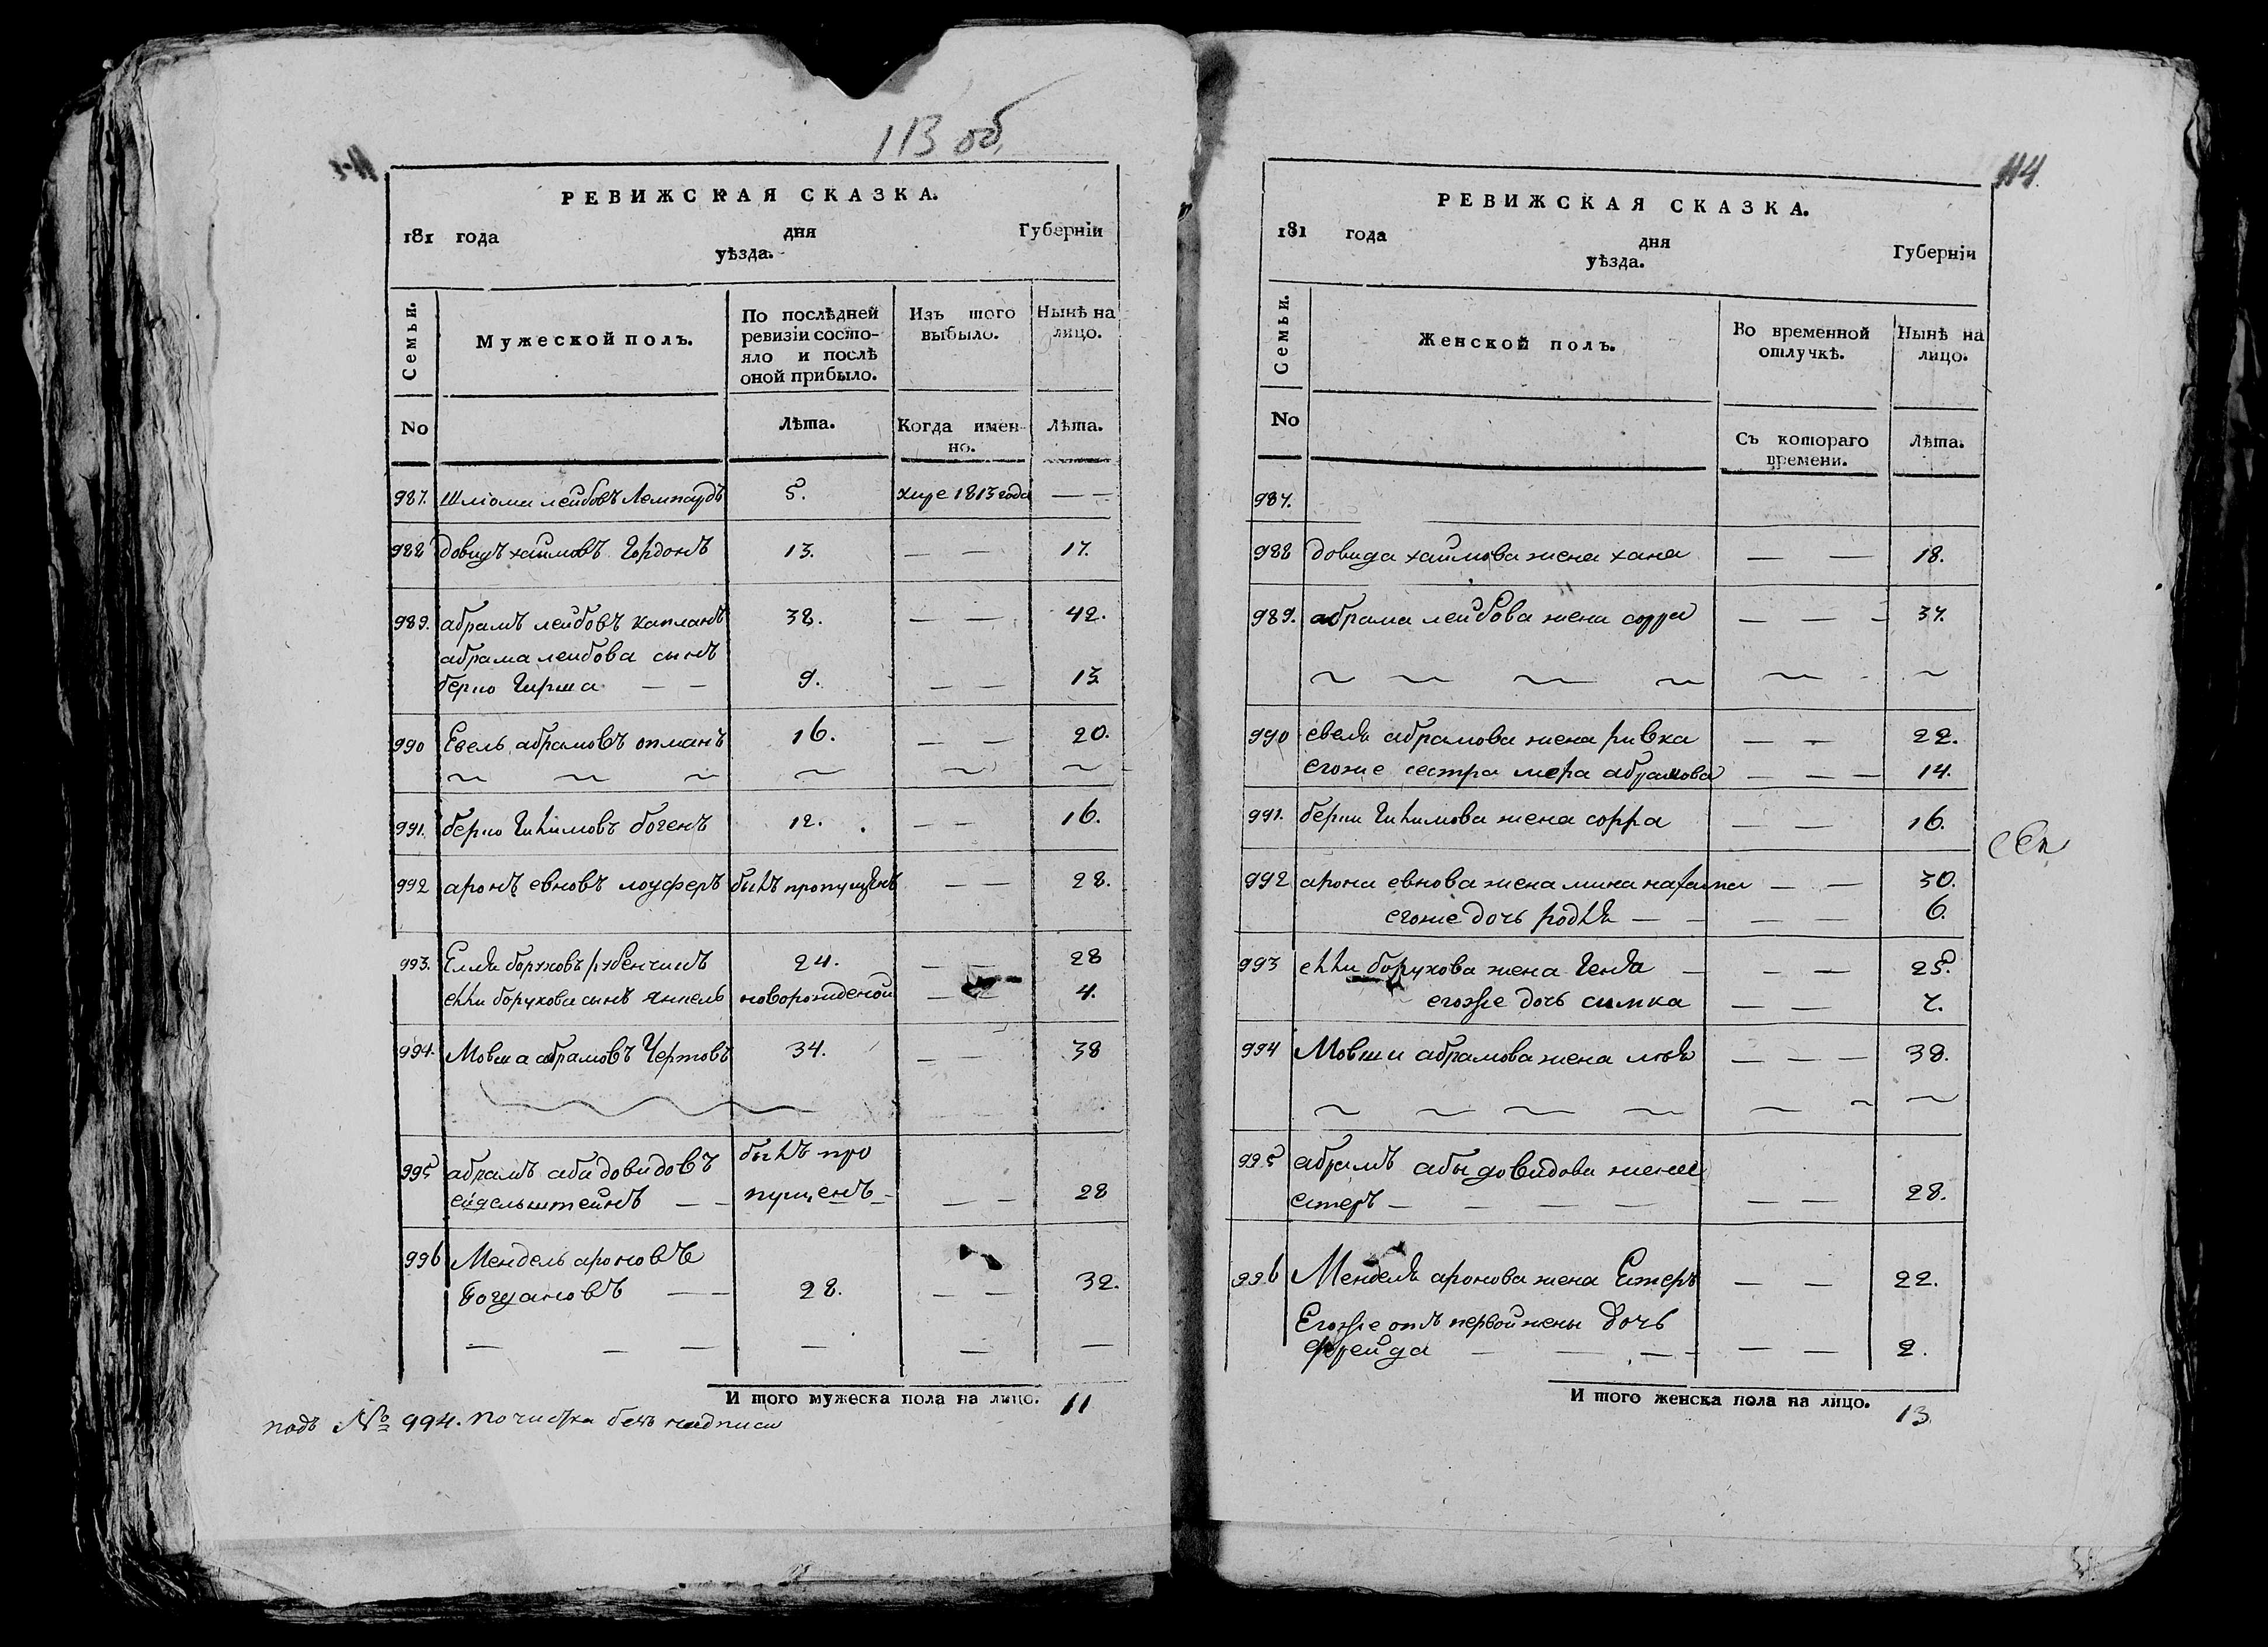 113 об.
РЕВИЖСКАЯ СКАЗКА.
181 года дня Губерніи
уѣзда.
Семьи.
Мужеской полъ.
По послѣдней ревизіи состо-
яло и послѣ
оной прибыло.
Изъ того
выбыло.
Нынѣ на
лицо.
No
Лѣта.
Когда имен-
но.
Лѣта.
987. шліома леибовъ 5. 1813 года — —
988 довидъ хаимовъ Гордонъ 13. — — 17.
989. абрамъ леибовъ капланъ 38. — — 42.
абрама леибова сынъ
берко Гирша — — 9. — — 13
990 Евель абрамовъ опманъ 16. — — 20.
991. берко богенъ 12. — — 16.
992 аронъ евновъ лоуферъ былъ пропущенъ — — 28.
993. Елля боруховъ рубенчикъ 24. — — 28
елли борухова сынъ янкель новорожденой — — 4.
994. Мовша абрамовъ Чертовъ 34. — — 38
995 абрамъ аба довидовъ былъ про
еидельштеинъ — — пущенъ — — — 28
996 Мендель ароновъ
— — 28. — — 32.
— — — — — —
И того мужеска пола на лицо. 11
подъ № 994. почистка безъ надписи
114.
РЕВИЖСКАЯ СКАЗКА.
181 года дня Губерніи
уѣзда.
Семьи.
Женской полъ.
Во временной
отлучкѣ.
Нынѣ на
лицо.
No
Съ котораго
времени.
Лѣта.
987.
988 довида хаимова жена хана — — 18.
989. абрама леибова жена сорра — — — 37.
990 евеля абрамова жена ривка — — 22.
егоже сестра мера абрамова — — — 14.
991. берки жена сорра — — 16.
992 арона евнова жена — — 30.
егоже дочь родля — — — — 6.
993 елли борухова жена Генда — — — 25.
егоже дочь симка — — 7.
994 Мовши абрамова жена — — — 38.
995 абрамъ абы довидова жена
естеръ — — — — — — 28.
996 Менделя аронова жена Естеръ — — 22.
Егоже отъ первой жены дочь
фрейда — — — — — — 2.
И того женска пола на лицо. 13.